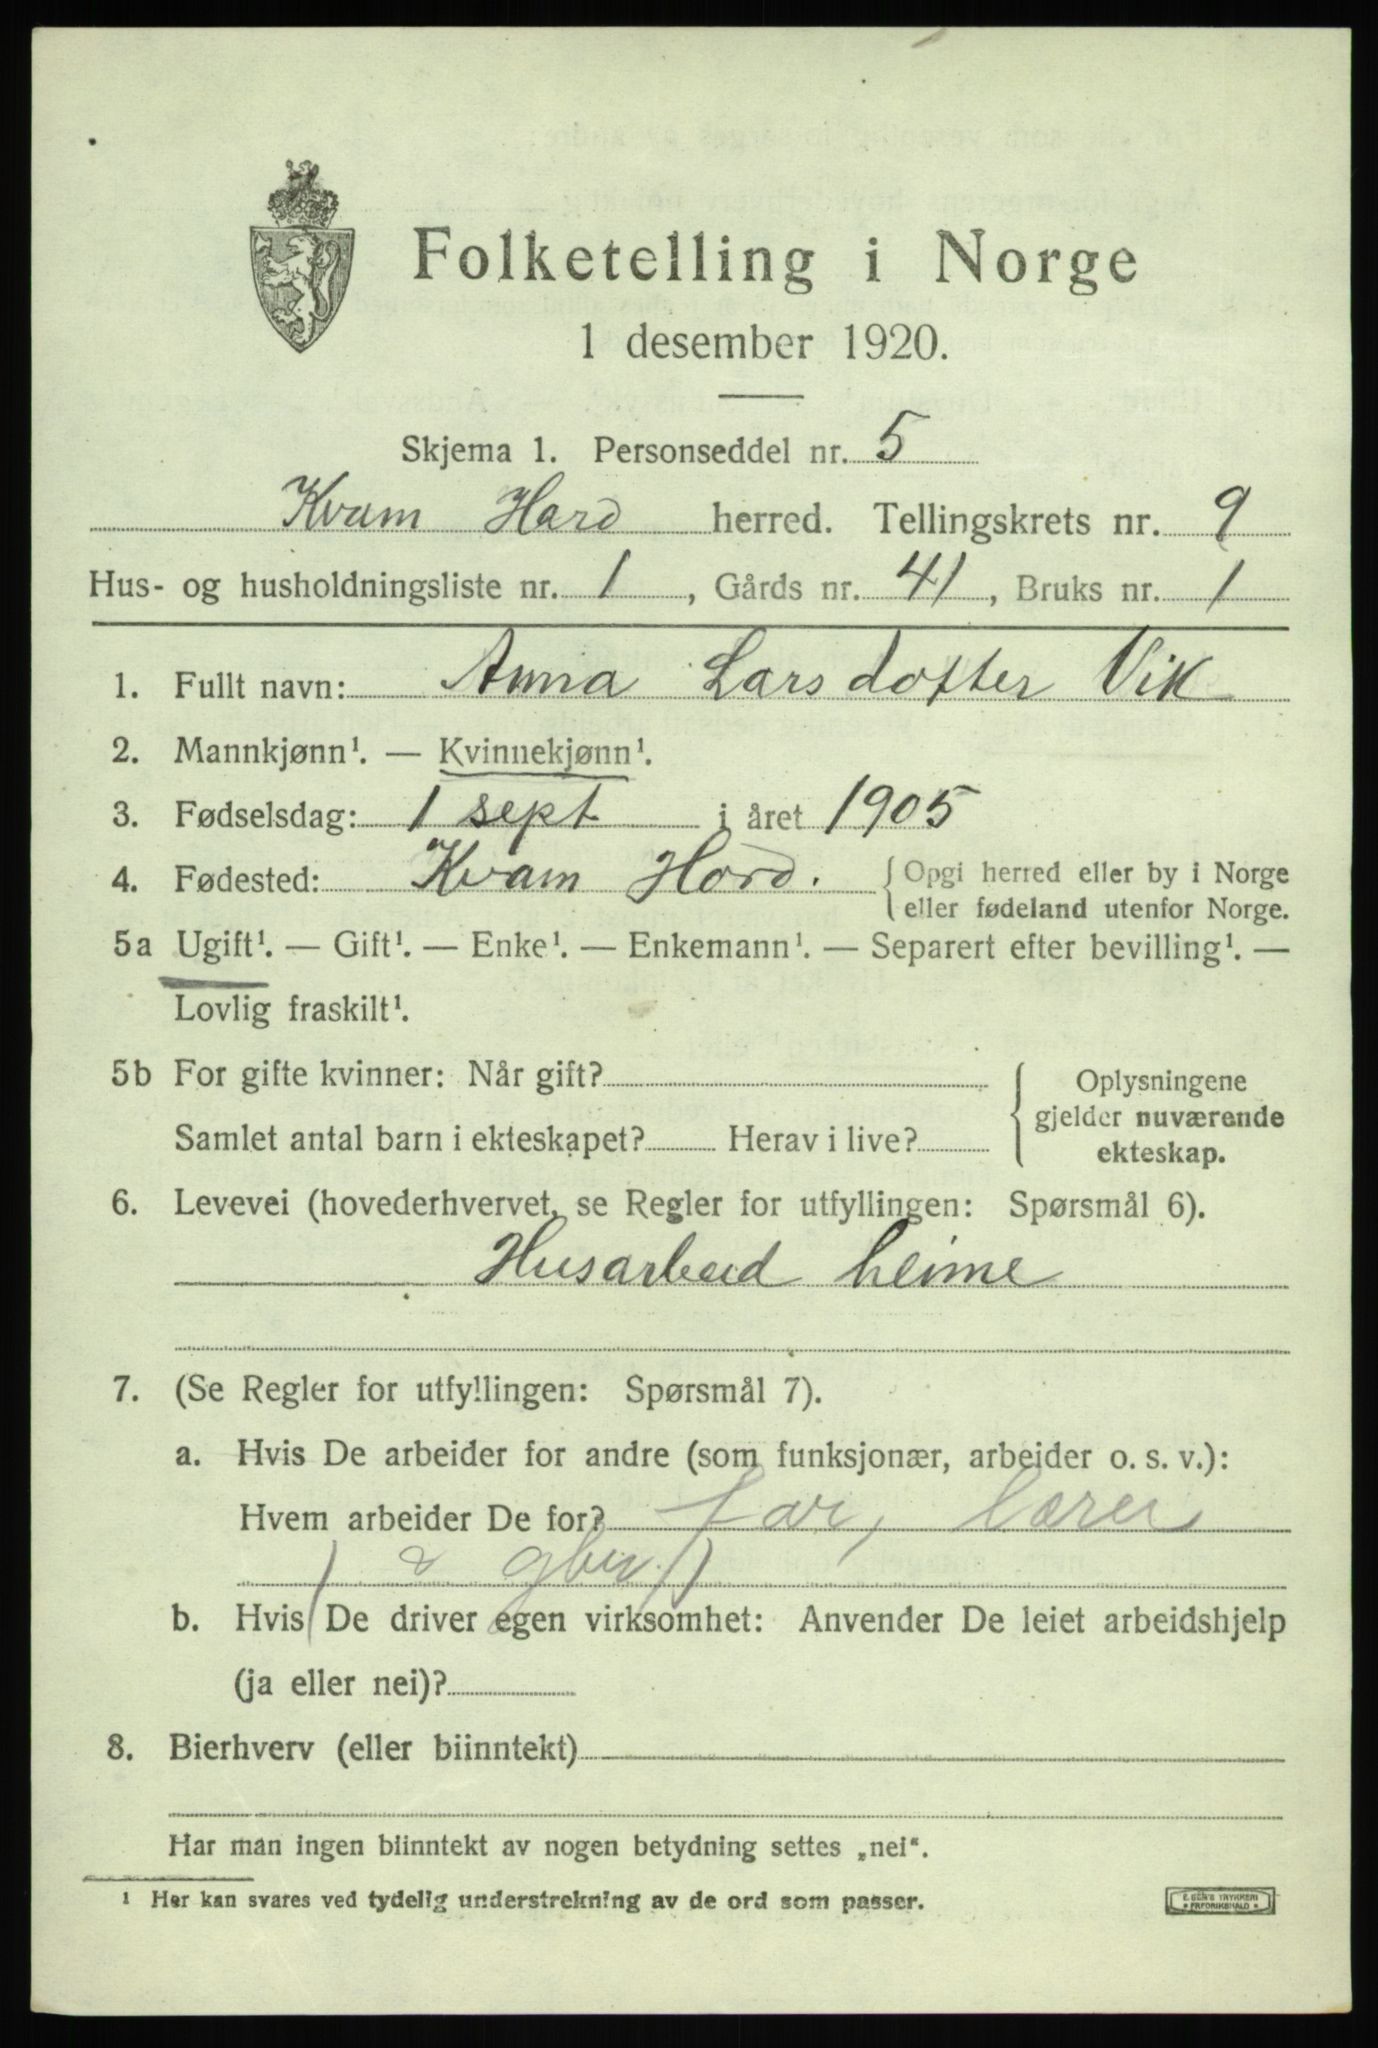 Folketelling i Norge
1 desember 1920.
Skjema 1. Personseddel nr. 5
Kvam Hard herred. Tellingskrets nr. 9
Hus- og husholdningsliste nr. 1, Gårds nr. 41, Bruks nr. 1
1. Fullt navn: Anna Larsdotter Vik
2. Mannkjønn¹. — Kvinnekjønn¹.
3. Fødselsdag: 1 sept i året 1905
4. Fødested: Kvam Hord. { Opgi herred eller by i Norge
eller fødeland utenfor Norge.
5a Ugift¹. — Gift¹. — Enke¹. — Enkemann¹. — Separert efter bevilling¹. —
Lovlig fraskilt¹.
5b For gifte kvinner: Når gift? { Oplysningene
gjelder nuværende
Samlet antal barn i ekteskapet? Herav i live?
ekteskap.
6. Levevei (hovederhvervet, se Regler for utfyllingen: Spørsmål 6).
Husarbeid heime
7. (Se Regler for utfyllingen: Spørsmål 7).
a. Hvis De arbeider for andre (som funksjonær, arbeider o. s. v.):
Hvem arbeider De for? far, lærer
( & gbr.)
b. Hvis De driver egen virksomhet: Anvender De leiet arbeidshjelp
(ja eller nei)?
8. Bierhverv (eller biinntekt)
Har man ingen biinntekt av nogen betydning settes „nei“.
¹ Her kan svares ved tydelig understrekning av de ord som passer.
E. SEM'S TRYKKERI
* FREDRIKSHALD *